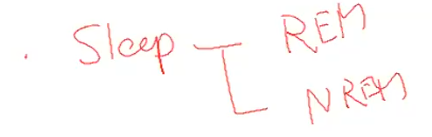 . Sleep REM
NREM